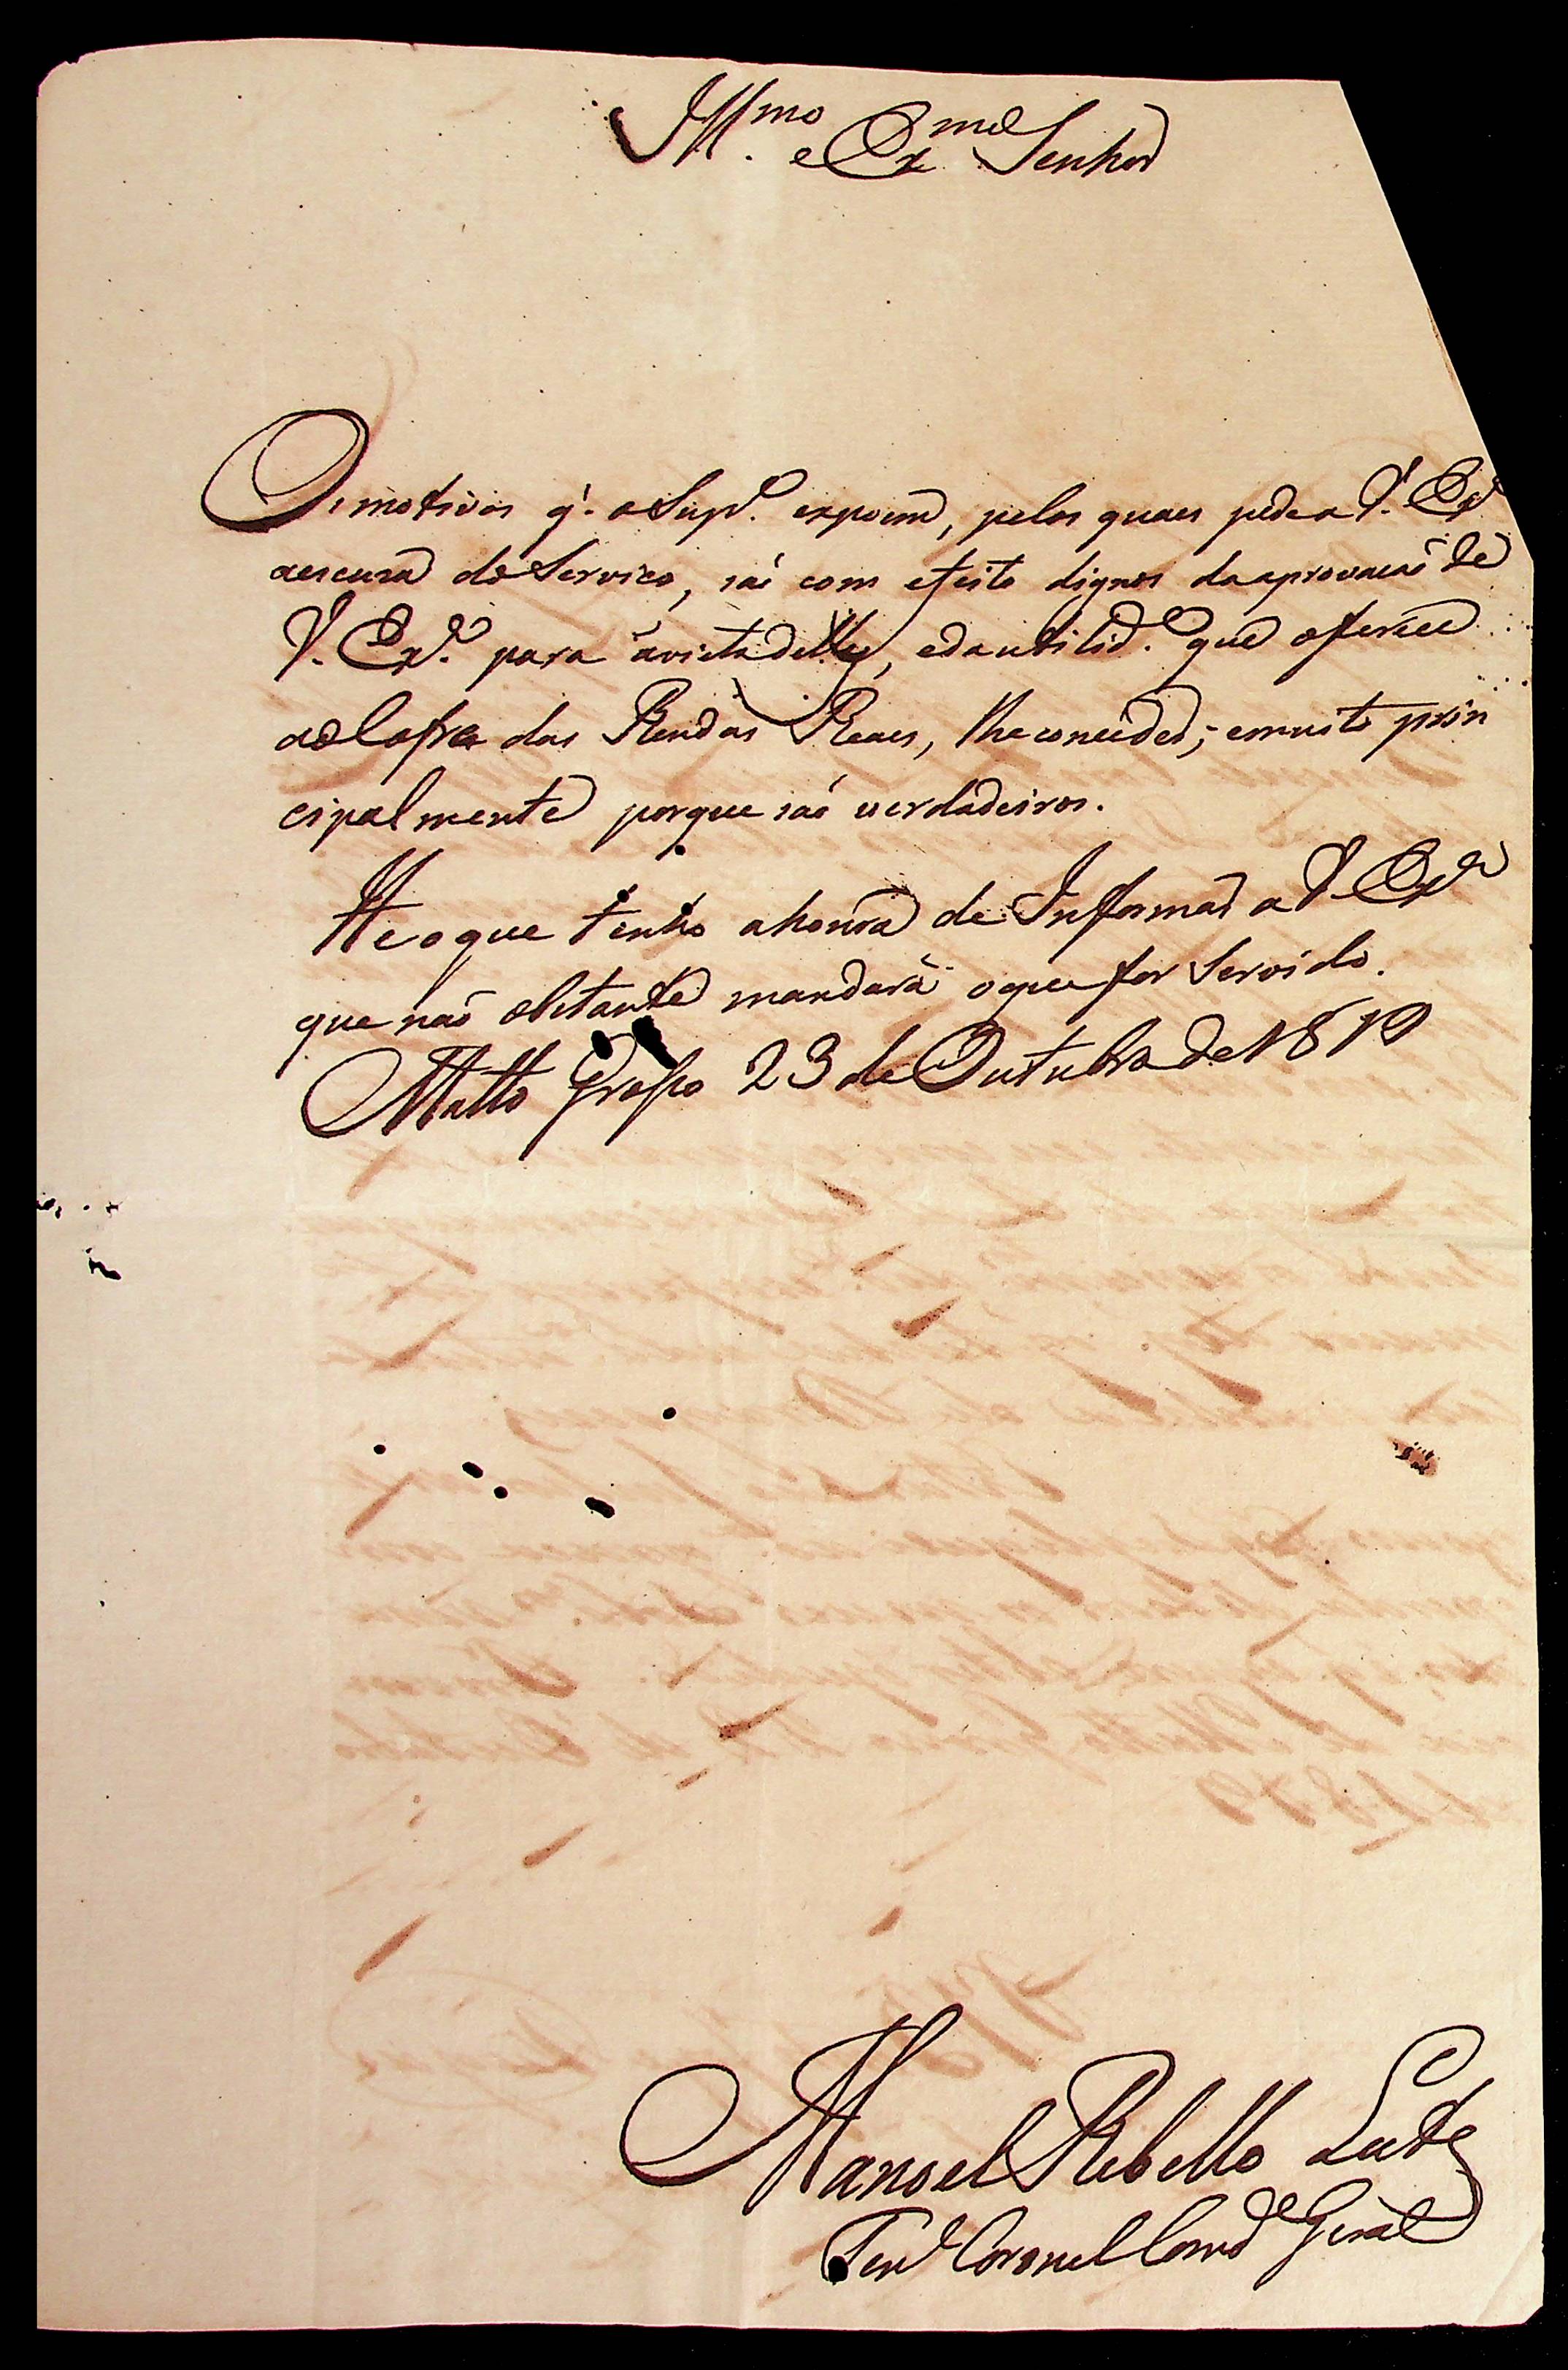 Ill.mo e Ex.mo Senhor
Os motivos q'. o Sup.e expoem, pelos quaes pede a V. Ex.a
aescuza do Servico, são com efeito dignos da aprovacaõ de
V. Ex.a para ávista delles, eda utilid.e que oferece
ao Cofre das Rendas Reaes, lhe conceder; emuito prin
cipalmente porque saõ verdadeiros.
He oque tenho ahonra de Informar a V. Ex.a
que naõ obstante mandará oque for Servido.
Matto Grosso 23 de Outubro de 1819
Manoel Rebello Leite
Ten.e Coronel Com.de Geral